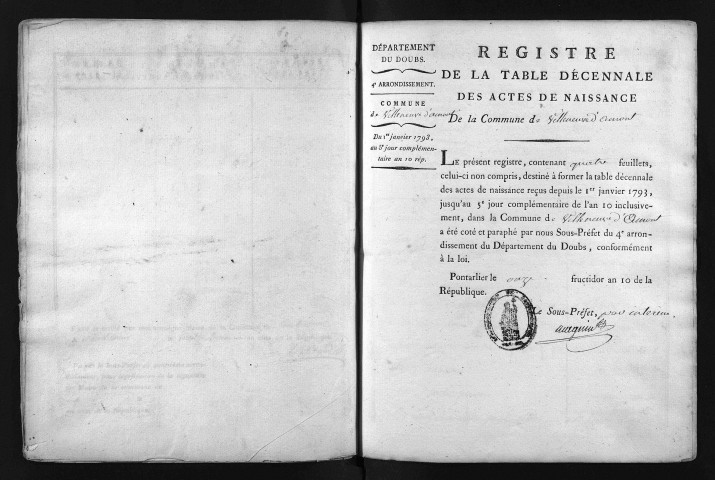 DÉPARTEMENT
DU DOUBS.
4e ARRONDISSEMENT.
COMMUNE
de Villeneuve d'amont
Du 1er janvier 1793,
au 5e jour complémen-
taire an 10 rép.
REGISTRE
DE LA TABLE DÉCENNALE
DES ACTES DE NAISSANCE
De la Commune de Villeneuve d'Amont
LE présent registre, contenant quatre feuillets,
celui-ci non compris, destiné à former la table décennale
des actes de naissance reçus depuis le 1er janvier 1793,
jusqu'au 5e jour complémentaire de l'an 10 inclusive-
ment, dans la Commune de Villeneuve d'Amont
a été coté et paraphé par nous Sous-Préfet du 4e arron-
dissement du Département du Doubs, conformément
à la loi.
Pontarlier le onze fructidor an 10 de la
République.
Le Sous-Préfet, par